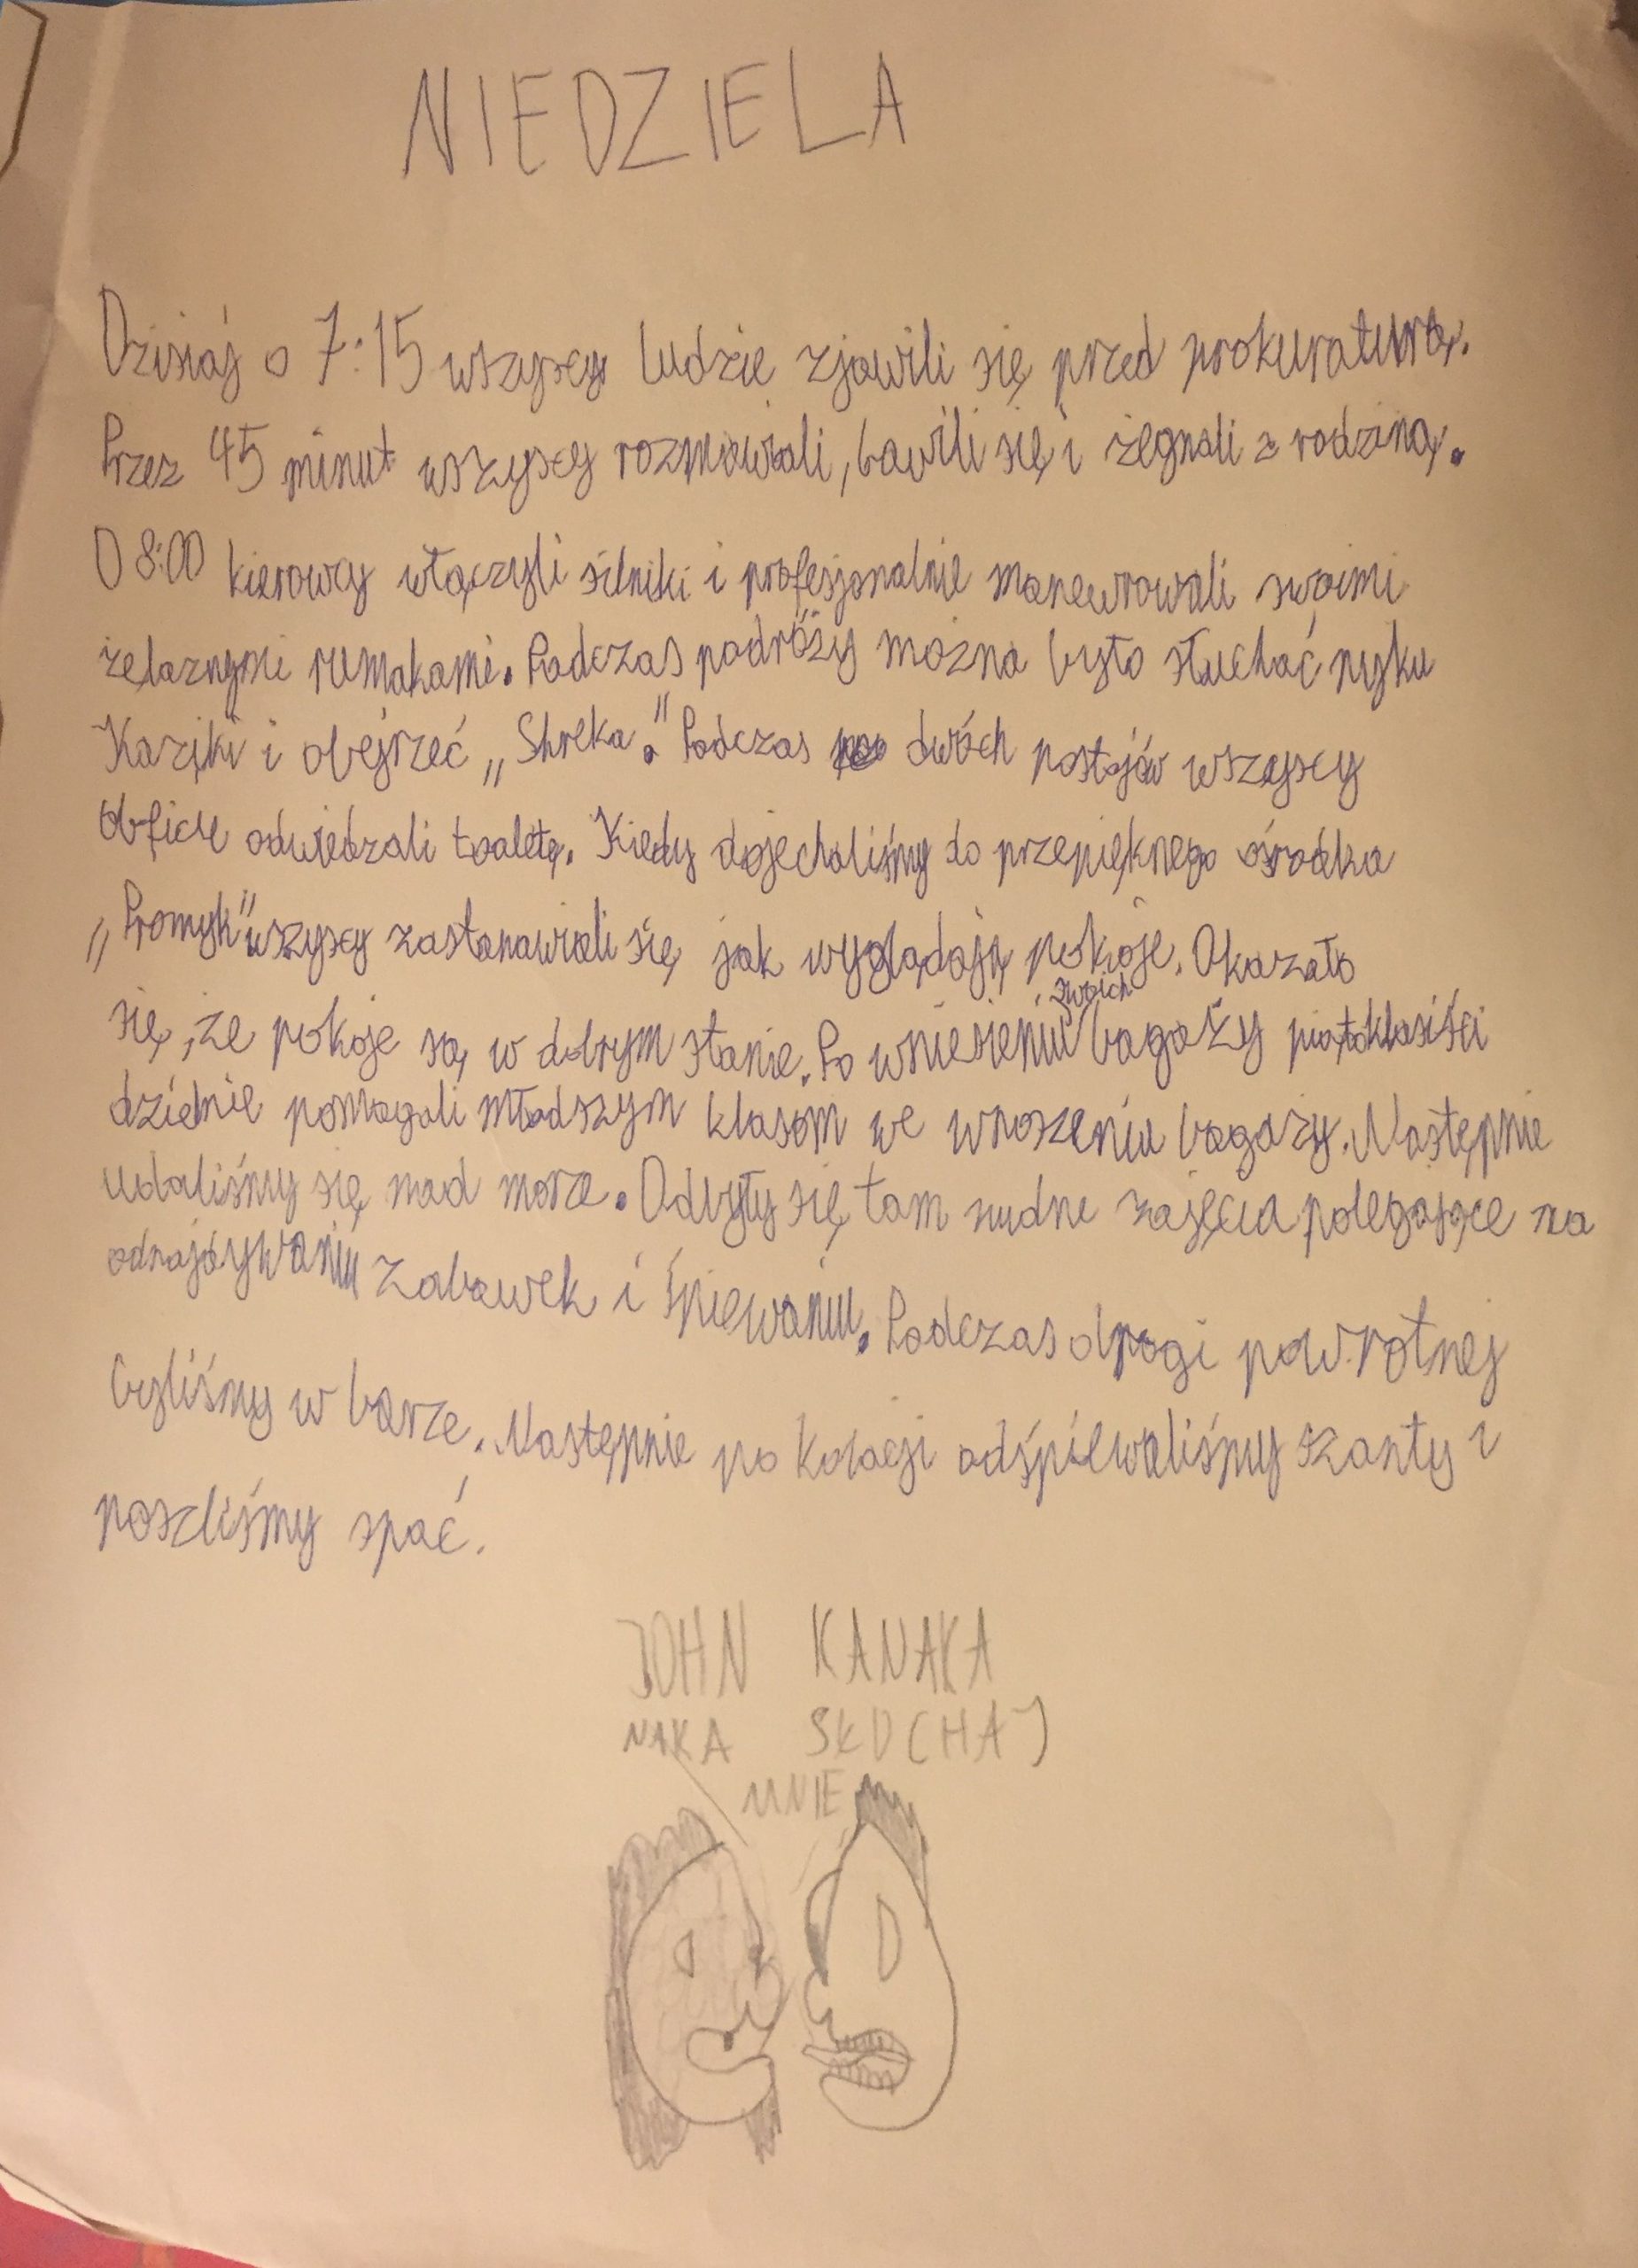 NIEDZIELA
Dzisiaj o 7:15 wszyscy ludzie zjawili się przed prokuraturą.
Przez 45 minut wszyscy rozmawiali, bawili się i żegnali z rodziną.
O 8:00 kierowcy włączyli silniki i profesjonalnie manewrowali swoimi
żelaznymi rumakami. Podczas podróży można było słuchać ryku
i obejrzeć „Shreka." Podczas dwóch postojów wszyscy
obficie odwiedzali toaletę. Kiedy dojechaliśmy do przepięknego ośrodka
„Promyk" wszyscy zastanawiali się jak wyglądają pokoje. Okazało
się, że pokoje są w dobrym stanie. Po wniesieniu swoich bagaży piątoklasiści
dzielnie pomagali młodszym klasom we wnoszeniu bagaży. Następnie
udaliśmy się nad morze. Odbyły się tam nudne zajęcia polegające na
odnajdywaniu zabawek i śpiewaniu. Podczas drogi powrotnej
byliśmy w barze. Następnie po kolacji odśpiewaliśmy szanty i
poszliśmy spać.
JOHN KANAKA
NAKA SŁUCHAJ
MNIE